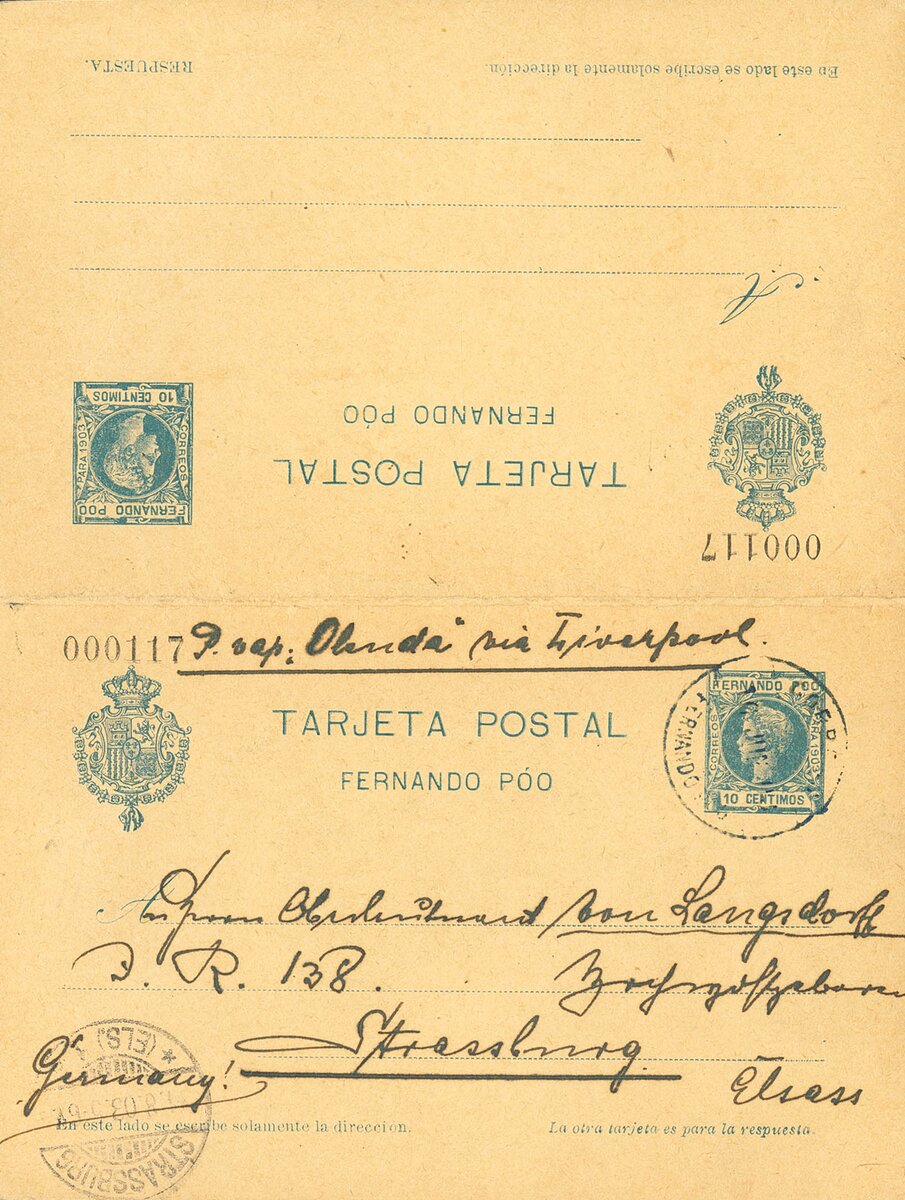 RESPUESTA.
En este lado se escribe solamente la dirección.
A.
10 CENTIMOS
CORREOS
PARA 1903
FERNANDO POO
FERNANDO PÓO
TARJETA POSTAL
000117
000117 P. vap: "Olenda" via Liverpool.
FERNANDO POO
CORREOS
PARA 1903
10 CENTIMOS
TARJETA POSTAL
FERNANDO PÓO
FERNANDO
An Herrn Oberleutnant von Langsdorff
I. R. 138. Hochwohlgeboren
Strassburg
Germany! Elsass
STRASSBURG
* (ELS)
En este lado se escribe solamente la dirección.
La otra tarjeta es para la respuesta.